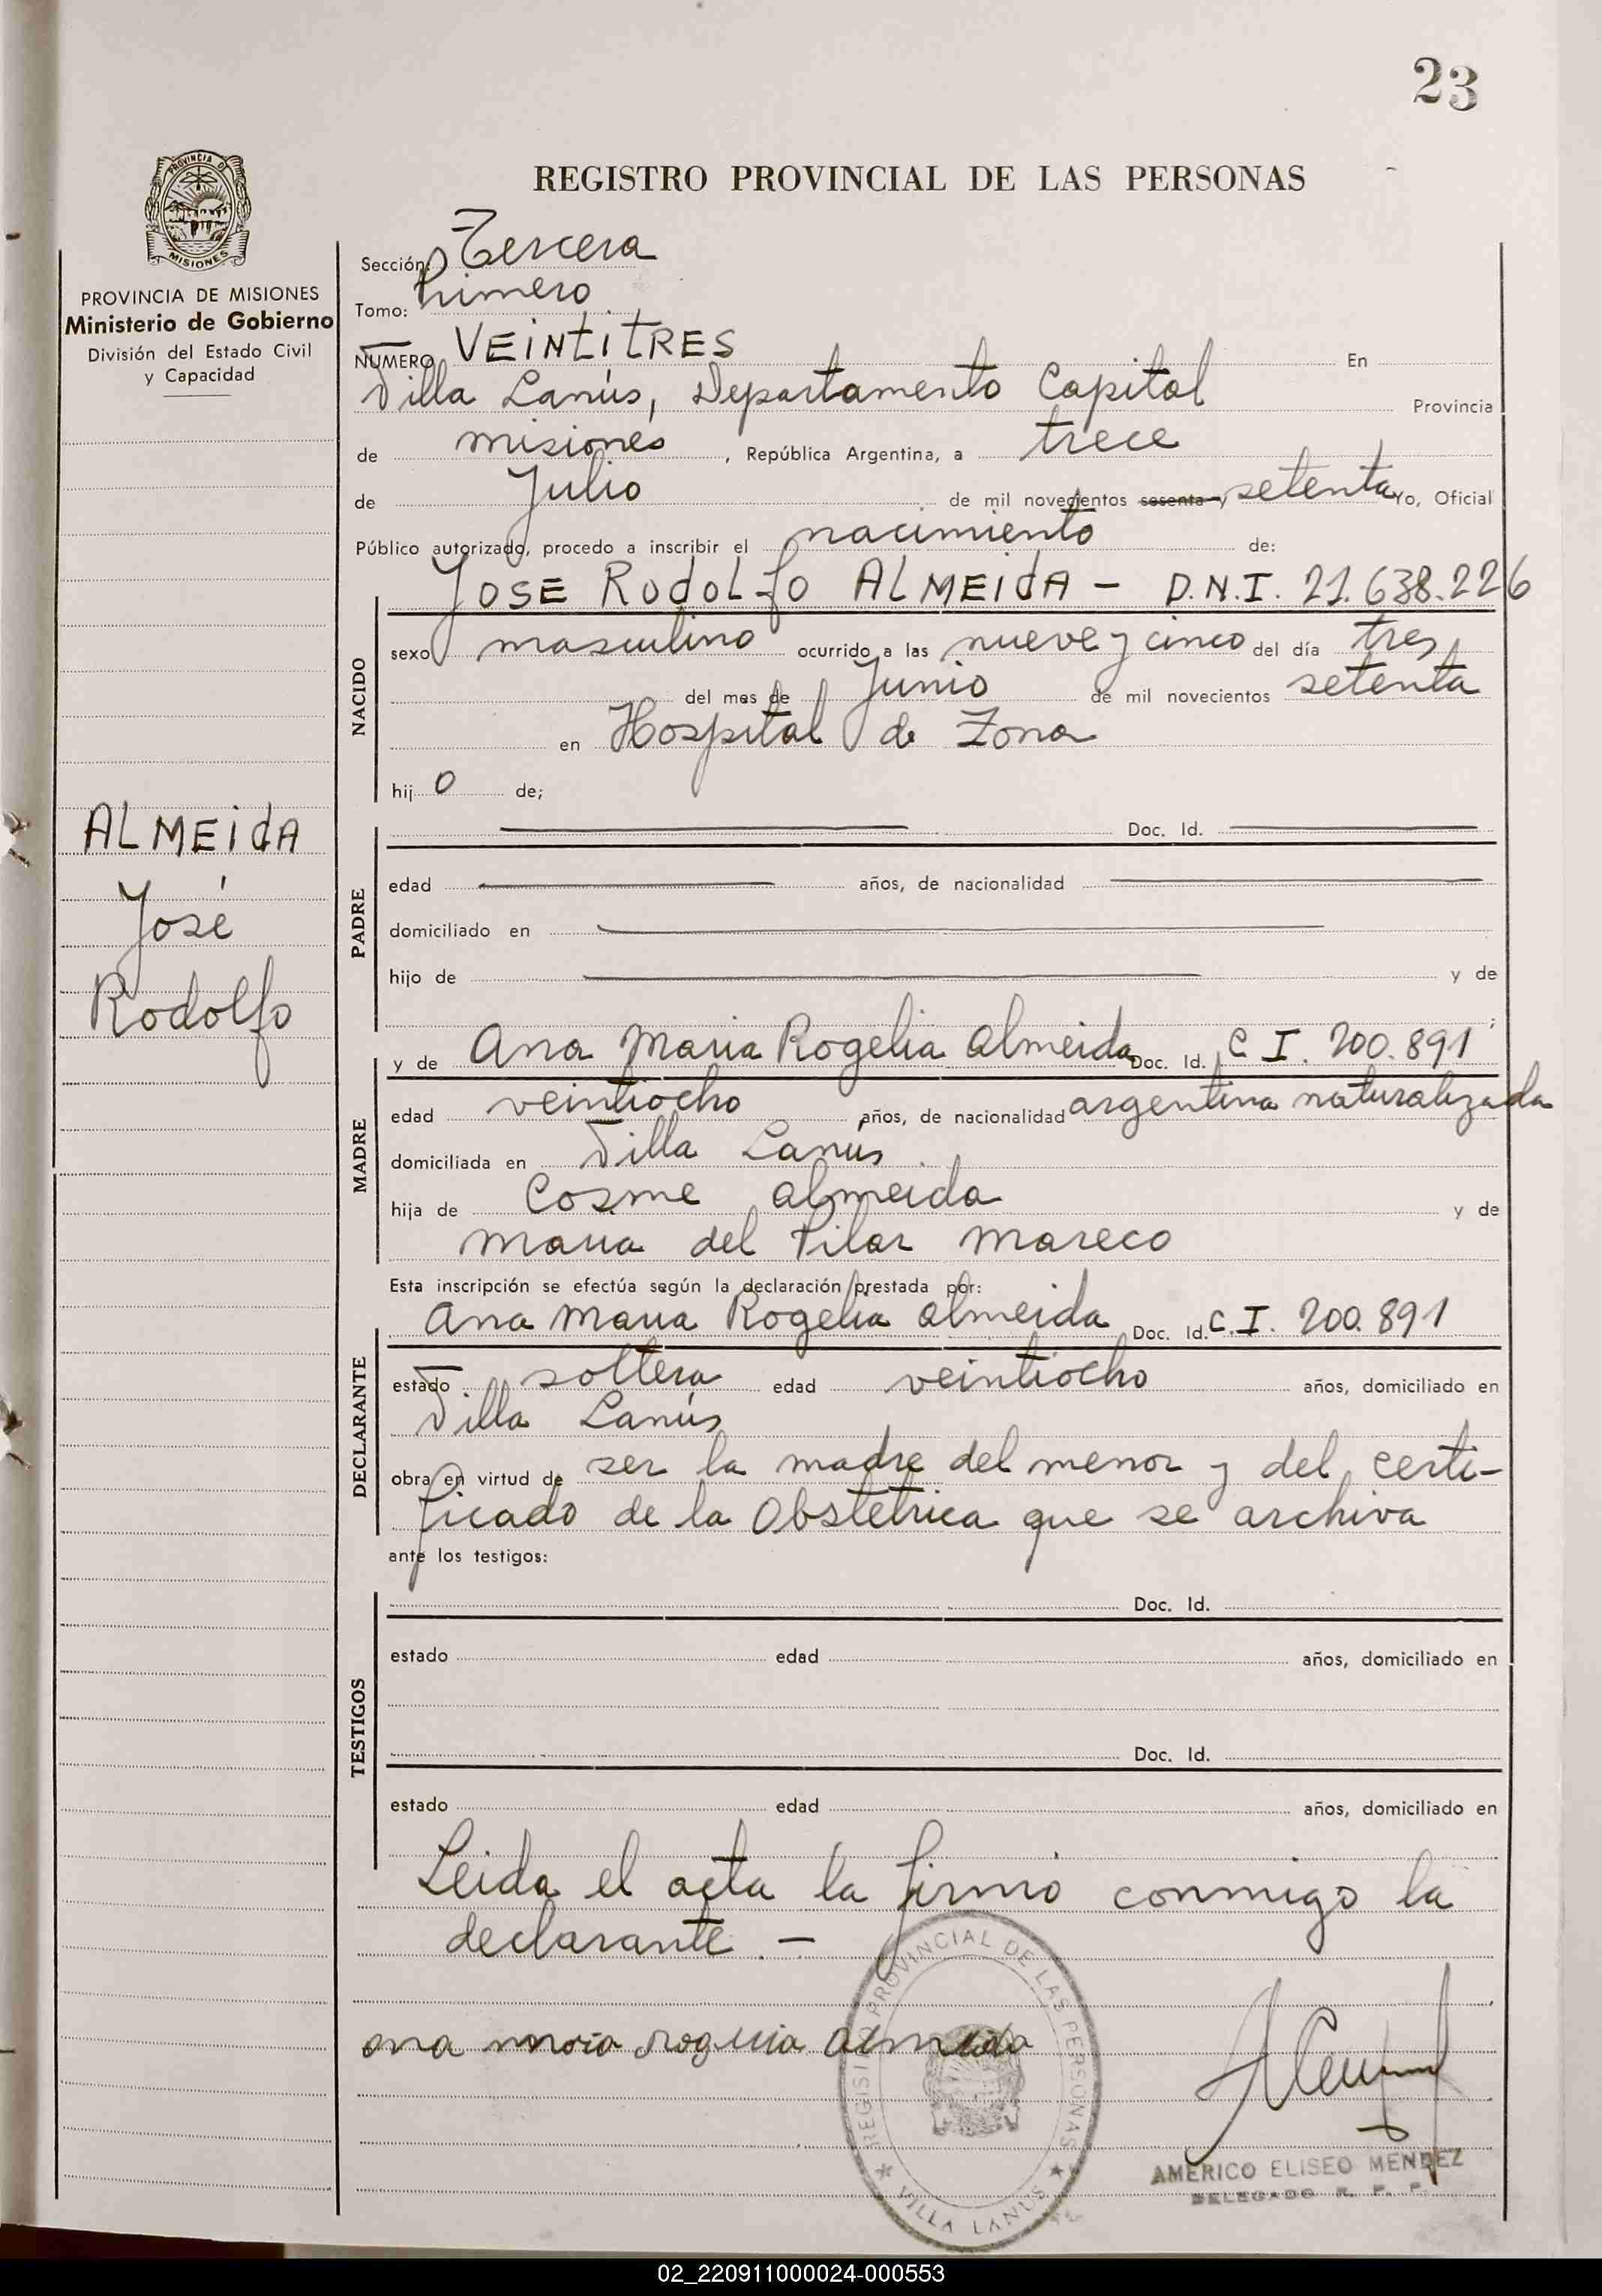 23
PROVINCIA DE
MISIONES
REGISTRO PROVINCIAL DE LAS PERSONAS
PROVINCIA DE MISIONES
Ministerio de Gobierno
División del Estado Civil
y Capacidad
ALMEIDA
José
Rodolfo
Sección: Tercera
Tomo: Primero
NUMERO VEINTITRES En
Villa Lanús, Departamento Capital Provincia
de misiones, República Argentina, a trece
de Julio de mil novecientos sesenta y setenta Yo, Oficial
Público autorizado, procedo a inscribir el nacimiento de:
JOSE RODOLFO ALMEIDA - D.N.I. 21.638.226
NACIDO
sexo masculino ocurrido a las nueve y cinco del día tres
del mes de Junio de mil novecientos setenta
en Hospital de Zona
hij o de;
PADRE
Doc. Id.
edad años, de nacionalidad
domiciliado en
hijo de y de
;
MADRE
y de Ana Maria Rogelia Almeida Doc. Id. C I. 200.891
edad veintiocho años, de nacionalidad argentina naturalizada
domiciliada en Villa Lanús
hija de Cosme Almeida y de
Maria del Pilar Mareco
Esta inscripción se efectúa según la declaración prestada por:
DECLARANTE
Ana Maria Rogelia Almeida Doc. Id. C.I. 200.891
estado soltera edad veintiocho años, domiciliado en
Villa Lanús
obra en virtud de ser la madre del menor y del certi-
ficado de la Obstetrica que se archiva
ante los testigos:
TESTIGOS
Doc. Id.
estado edad años, domiciliado en
Doc. Id.
estado edad años, domiciliado en
Leida el acta la firmó conmigo la
declarante. -
ana maria rogelia almeida
REGISTRO PROVINCIAL DE LAS PERSONAS
VILLA LANUS
AMERICO ELISEO MENDEZ
DELEGADO R. P. P.
02_220911000024-000553